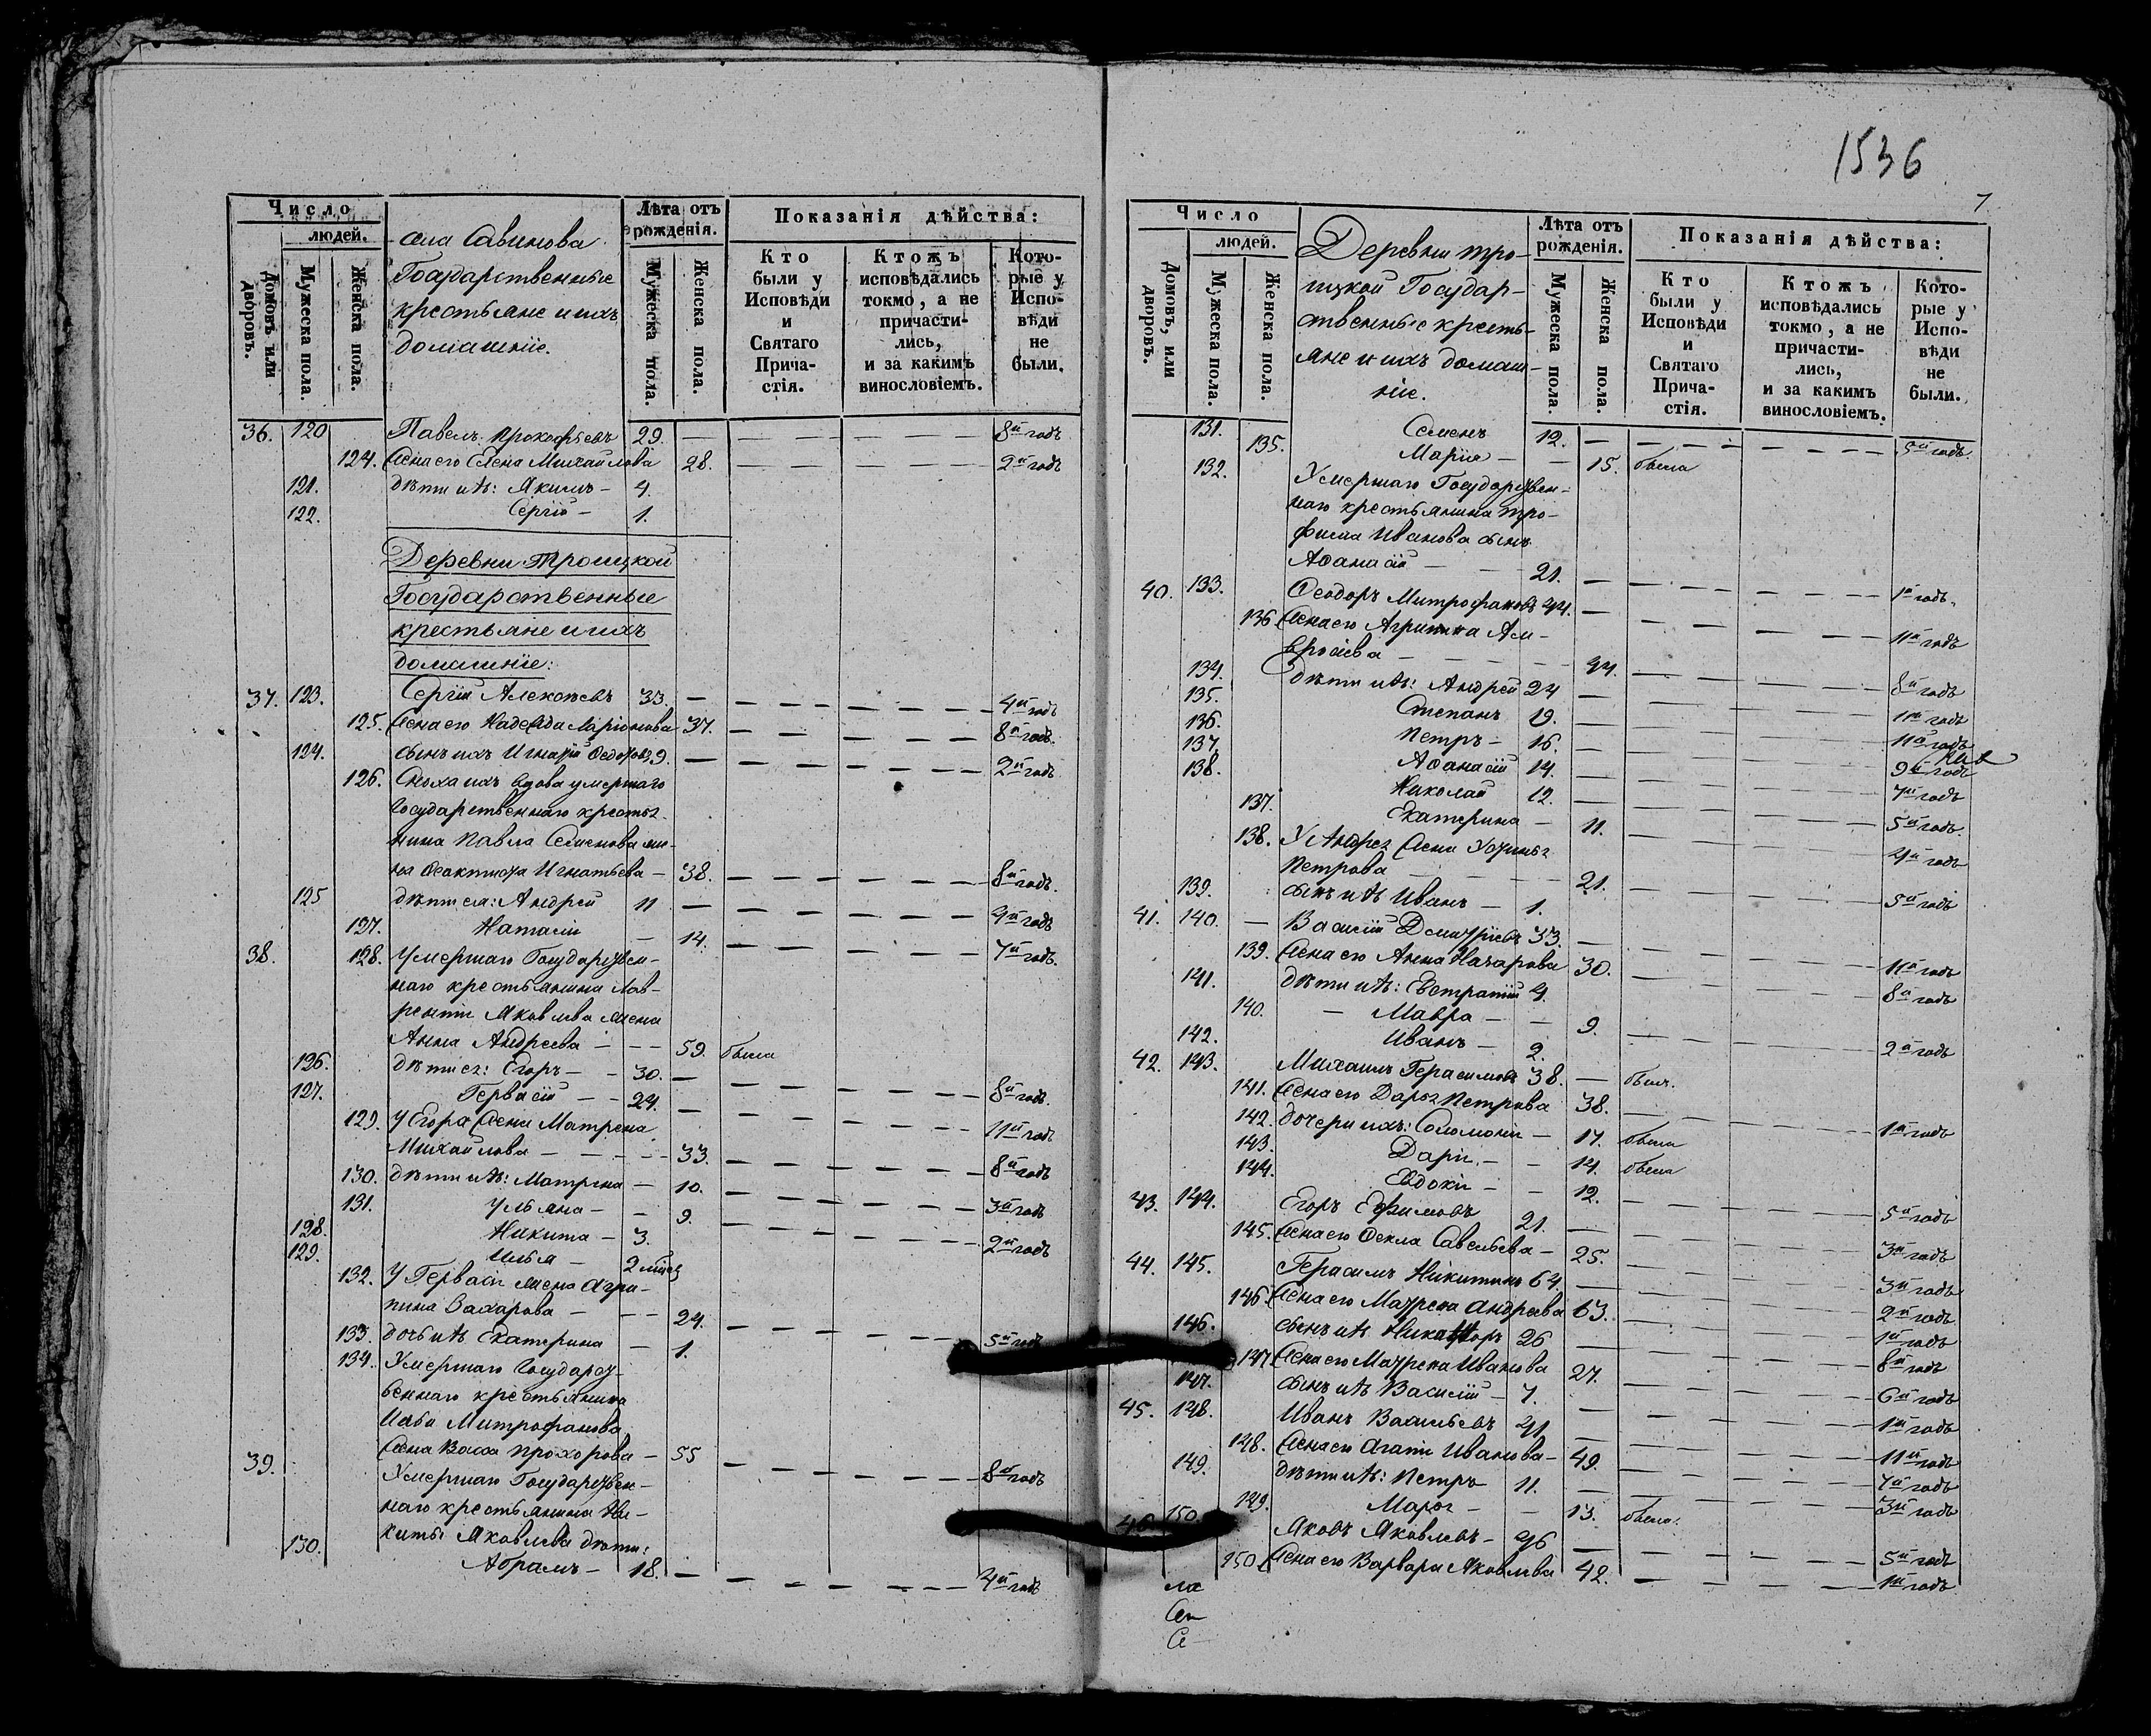 1536
7
Число
людей.
Домовъ или дворовъ.
Мужеска пола.
Женска пола.
села Савинова
Государственные
крестьяне и ихъ
домашніе.
Лѣта отъ рожденія.
Мужеска пола.
Женска пола.
Показанія дѣйства:
Кто были у Исповѣди и Святаго Причастія.
Ктожъ исповѣдались токмо, а не причастились, и за какимъ винословіемъ.
Которые у Исповѣди не были.
36. 120 Павелъ Прокофьевъ 29. — 8й годъ
124. Жена его Елена Михайлова 28. — 2й годъ
121. дѣти ихъ: Якимъ — 4.
122. Сергій — 1.
Деревни Троицкой
Государственные
крестьяне и ихъ
домашніе:
37. 123. Сергій Алексѣевъ 33. — 4й годъ
125. Жена его Надежда Ларіонова 37. — 8й годъ
124. сынъ ихъ Игнатій Ѳедоровъ 9. — 2й годъ
126. Сноха ихъ вдова умершаго
Государственнаго крестья-
нина Павла Семенова же-
на Ѳеактиста Игнатьева — 38. — 8й годъ.
125 дѣти ея: Андрей 11 — 4й годъ
127. Наталія — 14. — 7й годъ.
38. 128. Умершаго Государствен-
наго крестьянина Лав-
рентія Яковлева жена
Анна Андреева — 59. была
126. дѣти ея: Егоръ — 30. — 8й годъ.
127. Гервасій — 24. — 11й годъ
129. У Егора жена Матрена
Михайлова — 33. — 8й годъ
130. дѣти ихъ: Матрена — 10. — 3й годъ
131. Ульяна — 9. — 2й годъ
128. Никита — 3.
129. Илья — 2 мѣсяц
132. У Гервасія жена Агри-
пина Захарова — 24. — 5й годъ
133. дочь ихъ Екатерина — 1.
134. Умершаго Государст-
веннаго крестьянина
Митрофанова
Жена Васса Прохорова — 55 — 8й годъ
39. Умершаго Государствен-
наго крестьянина Ни-
киты Яковлева дѣти:
130. Абрамъ — 18. — 4й годъ
Число
людей.
Домовъ, или дворовъ.
Мужеска пола.
Женска пола.
Деревни Тро-
ицкой Государ-
ственные кресть-
яне и ихъ домаш-
ніе.
Лѣта отъ рожденія.
Мужеска пола.
Женска пола.
Показанія дѣйства:
Кто были у Исповѣди и Святаго Причастія.
Ктожъ исповѣдались токмо, а не причастились, и за какимъ винословіемъ.
Которые у Исповѣди не были.
131. Семенъ 12. — 5й годъ.
135. Марія — 15. была
132. Умершаго Государствен-
наго крестьянина Тро-
фима Иванова сынъ
Аѳанасій — 21. — 1й годъ.
40. 133. Ѳеодоръ Митрофановъ 44. — 11й годъ
136. Жена его Агрипина Ам-
вросіева — 44. — 8й годъ
134. дѣти ихъ: Андрей 24 — 11й годъ
135. Степанъ 19. — 11й годъ
136. Петръ — 16. — 9й годъ
137. Аѳанасій 14. — 7й годъ
138. Николай 12. — 5й годъ.
137. Екатерина — 11. — 4й годъ
138. У Андрея жена Устинья
Петрова — 21. — 5й годъ
139. сынъ ихъ Иванъ — 1.
41. 140. — Василій Дмитріевъ 33. — 11й годъ
139. Жена его Анна Назарова 30. — 8й годъ
141. дѣти ихъ: Евстратій 4.
140. — Мавра — 9. — 2й годъ
142. Иванъ — 2.
42. 143. Михаилъ Герасимовъ 38. — былъ.
141. Жена его Дарья Петрова 38. — 1й годъ
142. дочери ихъ: Соломонія — 17. была
143. Дарія — 14. была
144. Евдокія — 12. — 5й годъ
43. 144. Егоръ Ефимовъ 21. — 3й годъ
145. Жена его Ѳекла Савельева — 25. — 3й годъ
44. 145. Герасимъ Никитинъ 64 — 2й годъ
146. Жена его Матрена Андреева 63. — 1й годъ
146. сынъ ихъ Никаноръ 26 — 8й годъ
147. Жена его Матрена Иванова 27. — 6й годъ
147. сынъ ихъ Василій — 7. — 1й годъ
45. 148. Иванъ Васильевъ 41 — 11й годъ
148. Жена его Агафія Иванова — 49. — 7й годъ
149. дѣти ихъ: Петръ 11. — 3й годъ
149. Марья — 13. была.
46 150 Яковъ Яковлевъ — 46 — 5й годъ
150. Жена его Варвара Яковлева 42. — 1й годъ